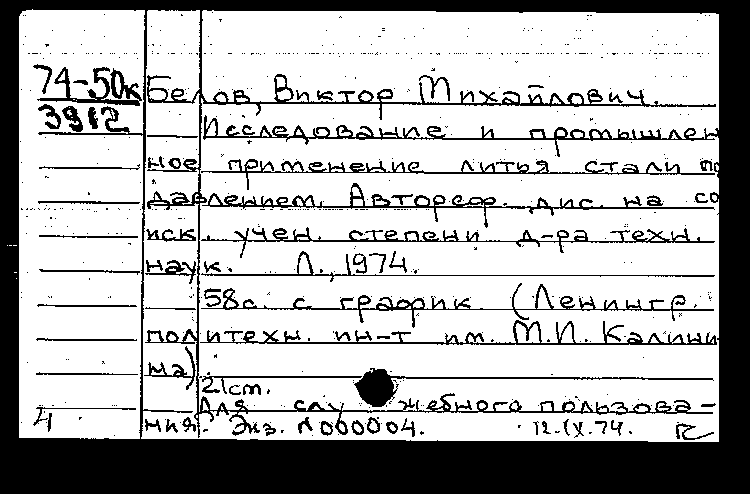 74-50к Белов, Виктор Михайлович.
3912
Исследование и промышлен
ное применение литья стали по
давлением. Автореф. дис. на со
иск. учен. степени д-ра техн.
наук. Л., 1974.
58с. с график. (Ленингр.
политехн. ин-т им. М.И. Калини
на).
21cm.
Для служебного пользова-
ния. Экз. №000004. 12.IX.74.
4